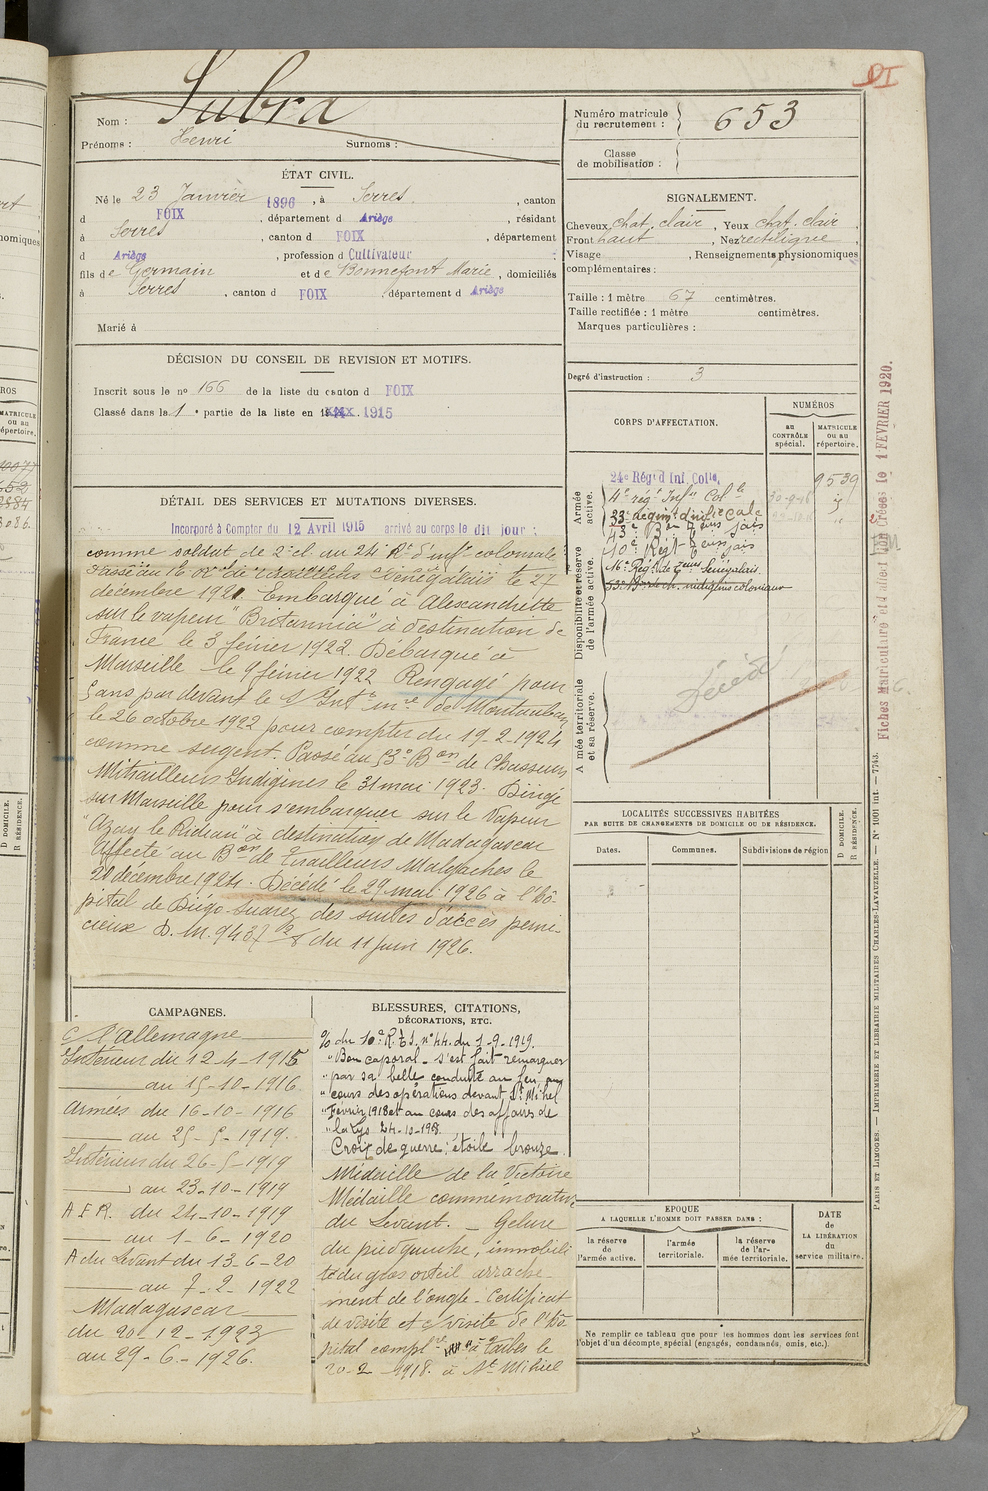 Nom : Subra
Prénoms : Henri Surnoms :
ÉTAT CIVIL.
Né le 23 Janvier 1896, à Serres, canton
d FOIX, département d Ariège, résidant
à Serres, canton d FOIX, département
d Ariège, profession d Cultivateur
fils de Germain et de Bonnefont Marie, domiciliés
à Serres, canton d FOIX, département d Ariège
Marié à
DÉCISION DU CONSEIL DE REVISION ET MOTIFS.
Inscrit sous le nº 166 de la liste du canton d FOIX
Classé dans la 1e partie de la liste en 1915
DÉTAIL DES SERVICES ET MUTATIONS DIVERSES.
Incorporé à Compter du 12 Avril 1915 arrivé au corps le dit jour :
comme soldat de 2e cl. au 24e Rt d'infie coloniale
Passé au 16e Rt de tirailleurs Sénégalais le 27
décembre 1921. Embarqué à Alexandrette
sur le vapeur "Britannia" à destination de
France le 3 février 1922. Débarqué à
Marseille le 9 février 1922 Rengagé pour
5 ans par devant le S/Intt mre de Montauban
le 26 octobre 1922 pour compter du 19-2-1924
comme sergent. Passé au 53e Bon de Chasseurs
Mitrailleurs Indigènes le 31 mai 1923. Dirigé
sur Marseille pour s'embarquer sur le Vapeur
"Azay le Rideau" à destination de Madagascar
Affecté au Bon de Tirailleurs Malgaches le
20 décembre 1924. Décédé le 29 mai 1926 à l'hô-
pital de Diégo-Suarez des suites d'accès perni-
cieux D.M. 9437 2/8 du 11 juin 1926.
CAMPAGNES.
C l'allemagne
Intérieur du 12-4-1915
au 15-10-1916
Armées du 16-10-1916
au 25-5-1919.
Intérieur du 26-5-1919
au 23-10-1919
A F R. du 24-10-1919
au 1-6-1920
A du Levant du 13-6-20
au 7-2-1922
Madagascar
du 20-12-1923
au 29-6-1926.
BLESSURES, CITATIONS,
DÉCORATIONS, ETC.
% du 10e R.T.S. nº 44. du 1-9-1919.
"Bon caporal - s'est fait remarquer
"par sa belle conduite au feu, au
"cours des opérations devant St Mihel
"Février 1918 et au cours des affaires de
"la Lys 24-10-1918.
Croix de guerre, étoile bronze
Médaille de la Victoire
Médaille commémorative
du Levant. - Gelure
du pied gauche, immobili
té du gros orteil arrache-
ment de l'ongle - Certificat
de visite et c/ visite de l'hô
pital complre à Tarbes le
20-2-1918. à St Mihiel
DI
Numéro matricule
du recrutement : 653
Classe
de mobilisation :
SIGNALEMENT.
Cheveux chat. clair, Yeux chat. clair,
Front haut, Nez rectiligne
Visage , Renseignements physionomiques
complémentaires :
Taille : 1 mètre 67 centimètres.
Taille rectifiée : 1 mètre centimètres.
Marques particulières :
Degré d'instruction : 3
CORPS D'AFFECTATION.
NUMÉROS
au CONTRÔLE spécial.
MATRICULE ou au répertoire.
Armée active.
24e Régt d Inf. Colle. 9539
4e régt Infie Colle 30-9-16
33e régimt d'infie cale
43e Bon teurs sais
10e Régt teurs sais
16e Régt de teurs Sénégalais
53e Bon de m. indigènes coloniaux
Disponibilité et réserve de l'armée active.
Armée territoriale et sa réserve.
Décédé
LOCALITÉS SUCCESSIVES HABITÉES
PAR SUITE DE CHANGEMENTS DE DOMICILE OU DE RÉSIDENCE.
Dates. Communes. Subdivisions de région
D DOMICILE.
R RÉSIDENCE.
EPOQUE
A LAQUELLE L'HOMME DOIT PASSER DANS :
la réserve de l'armée active.
l'armée territoriale.
la réserve de l'armée territoriale.
DATE de LA LIBÉRATION du service militaire.
Ne remplir ce tableau que pour les hommes dont les services font
l'objet d'un décompte spécial (engagés, condamnés, omis, etc.).
PARIS ET LIMOGES. — IMPRIMERIE ET LIBRAIRIE MILITAIRES CHARLES-LAVAUZELLE. — Nº 1001 int. — 7743.